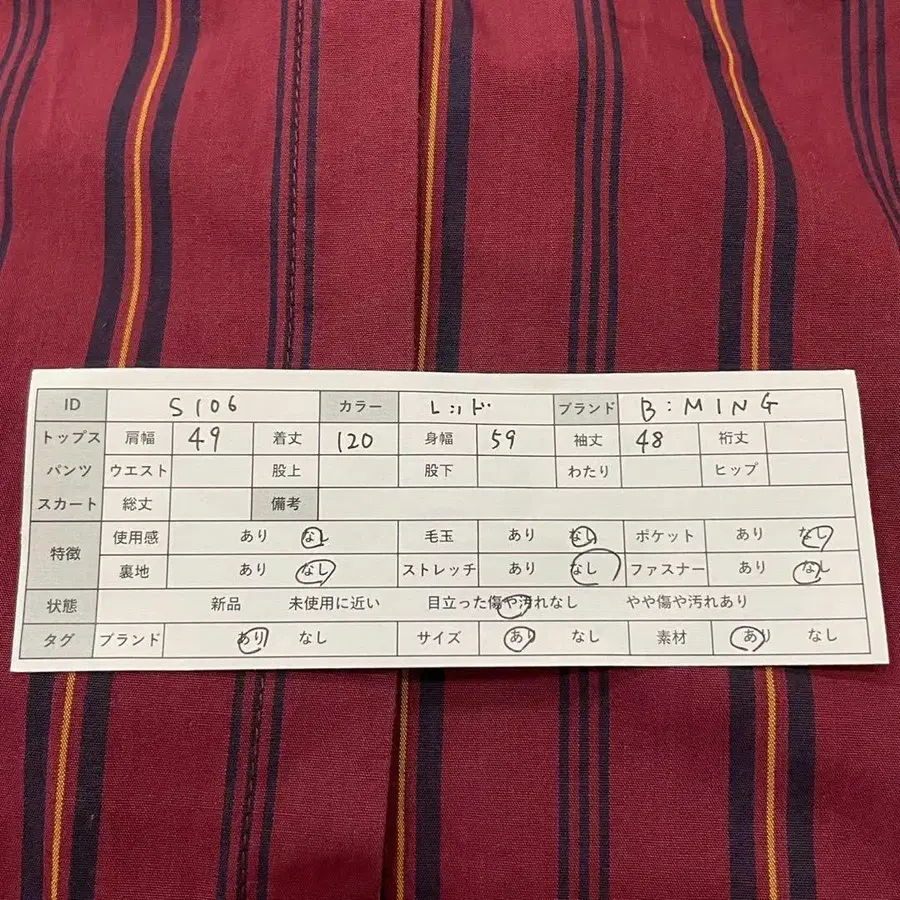 ID S106 カラー レッド ブランド B:MING
トップス 肩幅 49 着丈 120 身幅 59 袖丈 48 裄丈
パンツ ウエスト 股上 股下 わたり ヒップ
スカート 総丈 備考
特徴 使用感 あり なし 毛玉 あり なし ポケット あり なし
裏地 あり なし ストレッチ あり なし ファスナー あり なし
状態 新品 未使用に近い 目立った傷や汚れなし やや傷や汚れあり
タグ ブランド あり なし サイズ あり なし 素材 あり なし